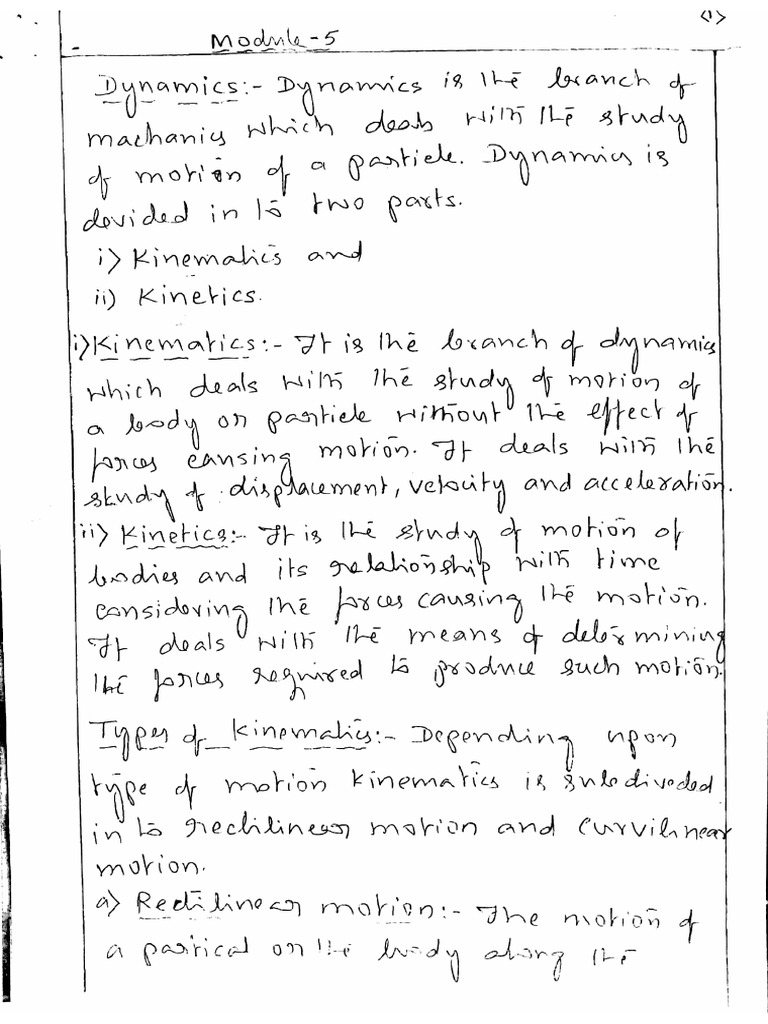 <1>
Module-5
Dynamics:- Dynamics is the branch of
machanics which deals with the study
of motion of a particle. Dynamics is
devided in to two parts.
i> Kinematics and
ii) Kinetics.
i>Kinematics:- It is the branch of dynamics
which deals with the study of motion of
a body or particle without the effect of
forces causing motion. It deals with the
study of displacement, velocity and acceleration.
ii> Kinetics:- It is the study of motion of
bodies and its relationship with time
considering the forces causing the motion.
It deals with the means of determining
the forces required to produce such motion.
Types of Kinematics:- Depending upon
type of motion kinematics is subdivided
in to rectilinear motion and curvilinear
motion.
a> Rectilinear motion:- The motion of
a partical or the body along the